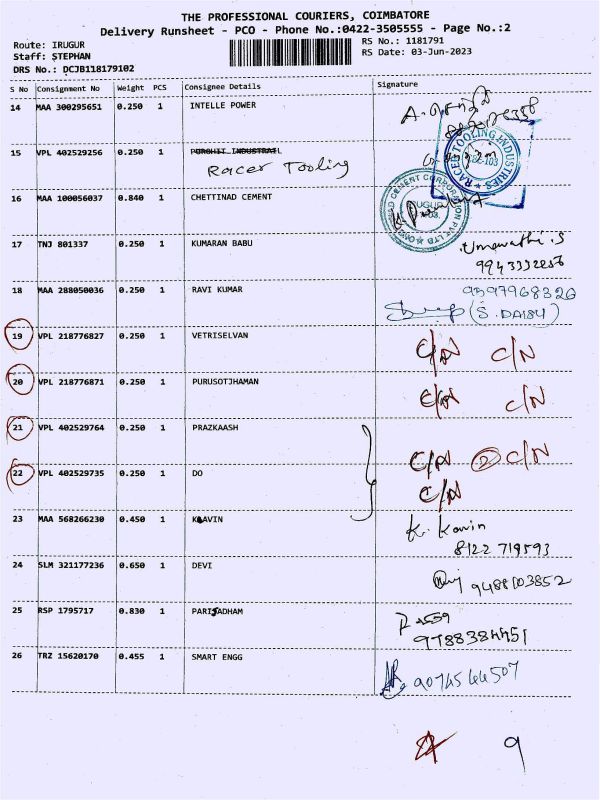 THE PROFESSIONAL COURIERS, COIMBATORE
Delivery Runsheet - PCO - Phone No.:0422-3505555 - Page No.:2
Route: IRUGUR
RS No.: 1181791
Staff: STEPHAN
RS Date: 03-Jun-2023
DRS No.: DCJB118179102
S No Consignment No Weight PCS Consignee Details Signature
14 MAA 300295651 0.250 1 INTELLE POWER
15 VPL 402529256 0.250 1 PUROHIT INDUSTRAIL
Racer Tooling
RACER TOOLING INDUSTRIES
16 MAA 100056037 0.840 1 CHETTINAD CEMENT
CHETTINAD CEMENT CORPORATION PVT LTD
IRUGUR
17 TNJ 801337 0.250 1 KUMARAN BABU
Umavathi.S
9943332256
18 MAA 288050036 0.250 1 RAVI KUMAR
9597968320
(S.DAISY)
19 VPL 218776827 0.250 1 VETRISELVAN
C/N C/N
20 VPL 218776871 0.250 1 PURUSOTJHAMAN
C/N C/N
21 VPL 402529764 0.250 1 PRAZKAASH
C/N 2 C/N
22 VPL 402529735 0.250 1 DO
C/N
23 MAA 568266230 0.450 1 KLAVIN
K. Kavin
8122 719593
24 SLM 321177236 0.650 1 DEVI
9488003852
25 RSP 1795717 0.830 1 PARIJADHAM
9788384451
26 TRZ 15620170 0.455 1 SMART ENGG
9074544507
9